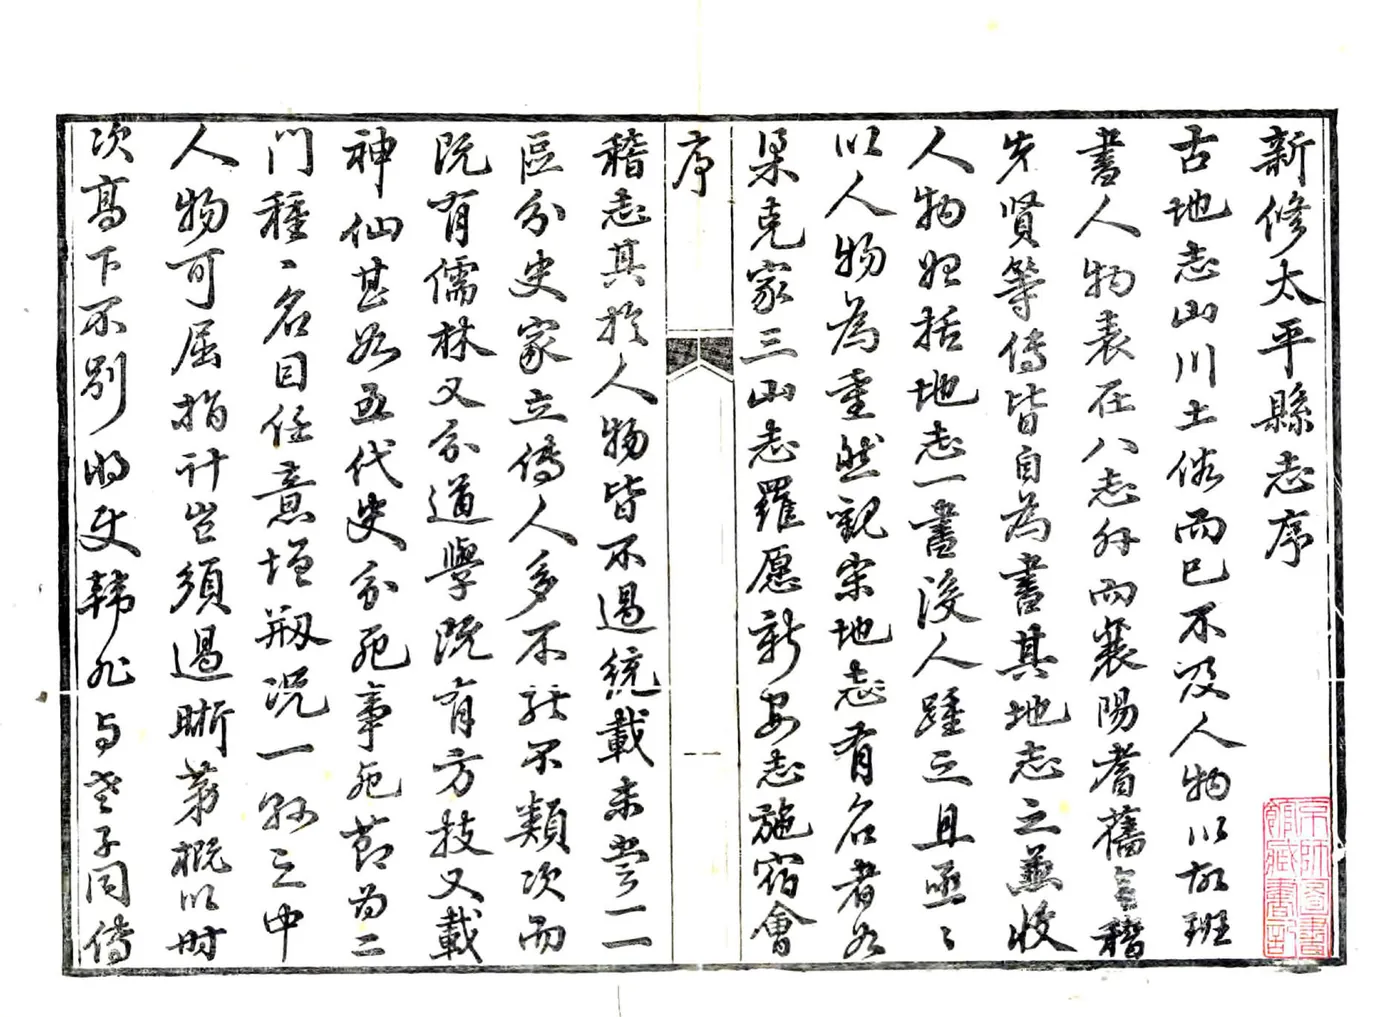 新修太平縣志序
古地志山川土俗而已不及人物以故班
書人物表在八志外而襄陽耆舊會稽
先賢等傳皆自為書其地志之兼收
人物始括地志一書後人踵之且亟亟
以人物為重然觀宋地志有名者如
梁克家三山志羅愿新安志施宿會
序
一
稽志其於人物皆不過統載未嘗一一
區分史家立傳人多不能不類次而
既有儒林又分道學既有方技又載
神仙甚如五代史分死事死節為二
門種種名目任意增刱況一縣之中
人物可屈指計豈須過晰第概以時
次高下不別明史韓非與老子同傳
京師圖書
館藏書記